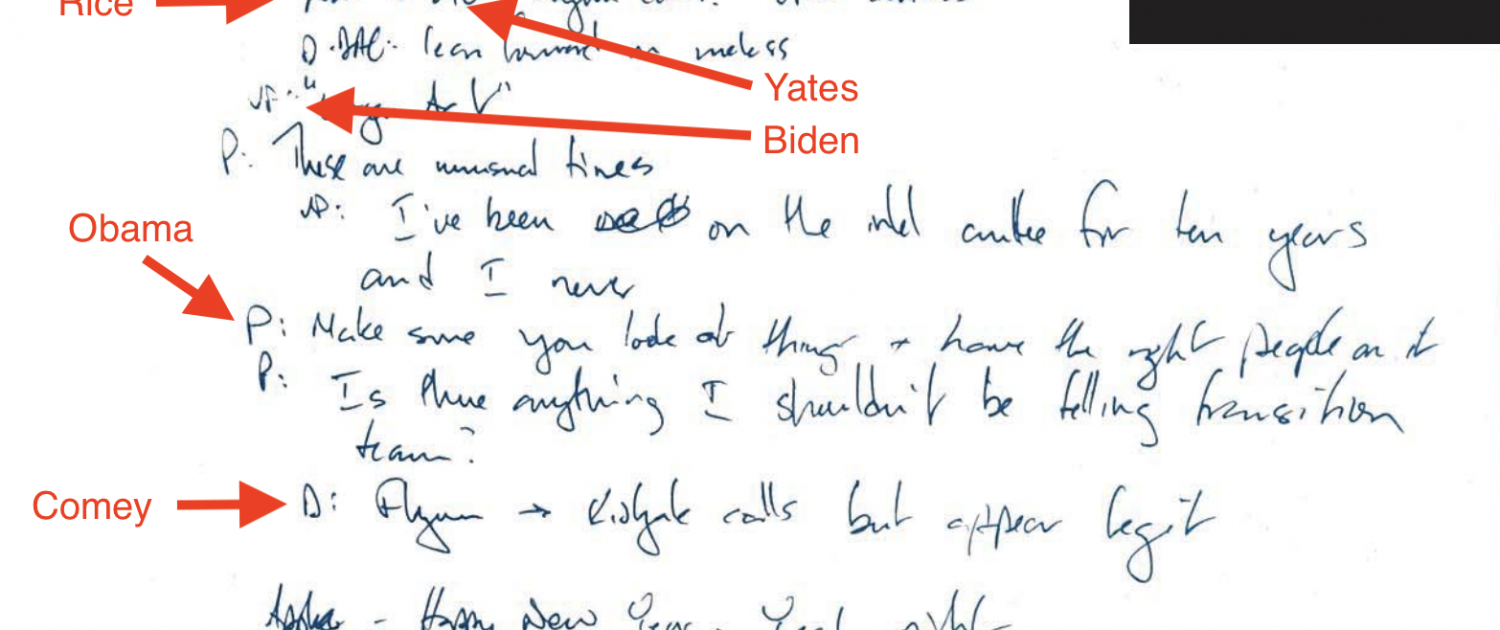 Rice
D-DAG: lean forward on
Yates
VP: "Logan Act"
Biden
P: These are unusual times
VP: I've been on the intel cmttee for ten years
and I never
Obama
P: Make sure you look at things + have the right people on it
P: Is there anything I shouldn't be telling transition
team?
Comey
D: Flynn → Kislyak calls but appear legit
Happy New Year. Yeah right